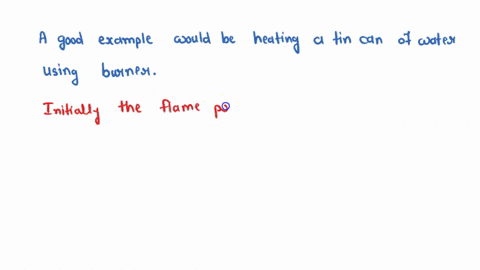 A good example would be heating a tin can of water
using burner.
Initially the flame po